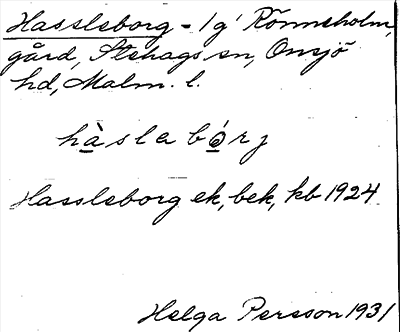 Hassleborg - 1 g' Rönneholm,
gård, Stehags sn, Onsjö
hd, Malm. l.
hàsla bórj
Hassleborg ek, bek, kb 1924
Helga Persson 1931